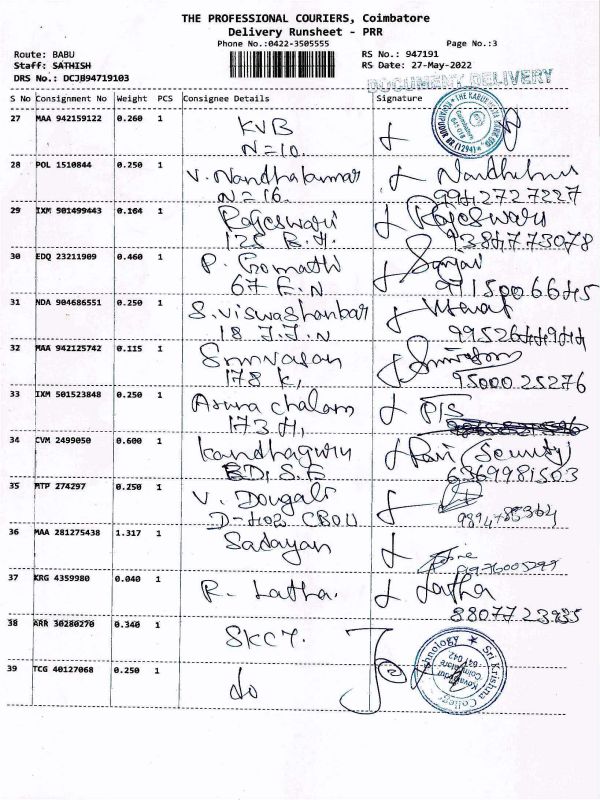 THE PROFESSIONAL COURIERS, Coimbatore
Delivery Runsheet - PRR
Phone No.:0422-3505555
Page No.:3
Route: BABU
RS No.: 947191
Staff: SATHISH
RS Date: 27-May-2022
DRS No.: DCJB94719103
DOCUMENT DELIVERY
S No Consignment No Weight PCS Consignee Details Signature
27 MAA 942159122 0.260 1 KVB
N=10.
28 POL 1510844 0.250 1 V. Nandhakumar
N=16. 9942727227
29 IXM 501499443 0.164 1 Rajeswari Rajeswari
125 B.H. 9384773078
30 EDQ 23211909 0.460 1 P. Gomathi
67 E.N 9715006645
31 NDA 904686551 0.250 1 S. Viswashankar
18 J.J.N
32 MAA 942125742 0.115 1 Srinivasan
178 K, 95000 25276
33 IXM 501523848 0.250 1 Aruna chalam P/S
173 H,
34 CVM 2499050 0.600 1 Kandhaguru Ravi (Scurity)
6369981503
35 MTP 274297 0.250 1
D-402 CBOU
36 MAA 281275438 1.317 1 Sadayan
37 KRG 4359980 0.040 1 R. Latha. Latha
38 ARR 30280270 0.340 1 SKCT.
39 TCG 40127068 0.250 1 do
Sri Krishna College
Kovaipudur
Coimbatore
641 042